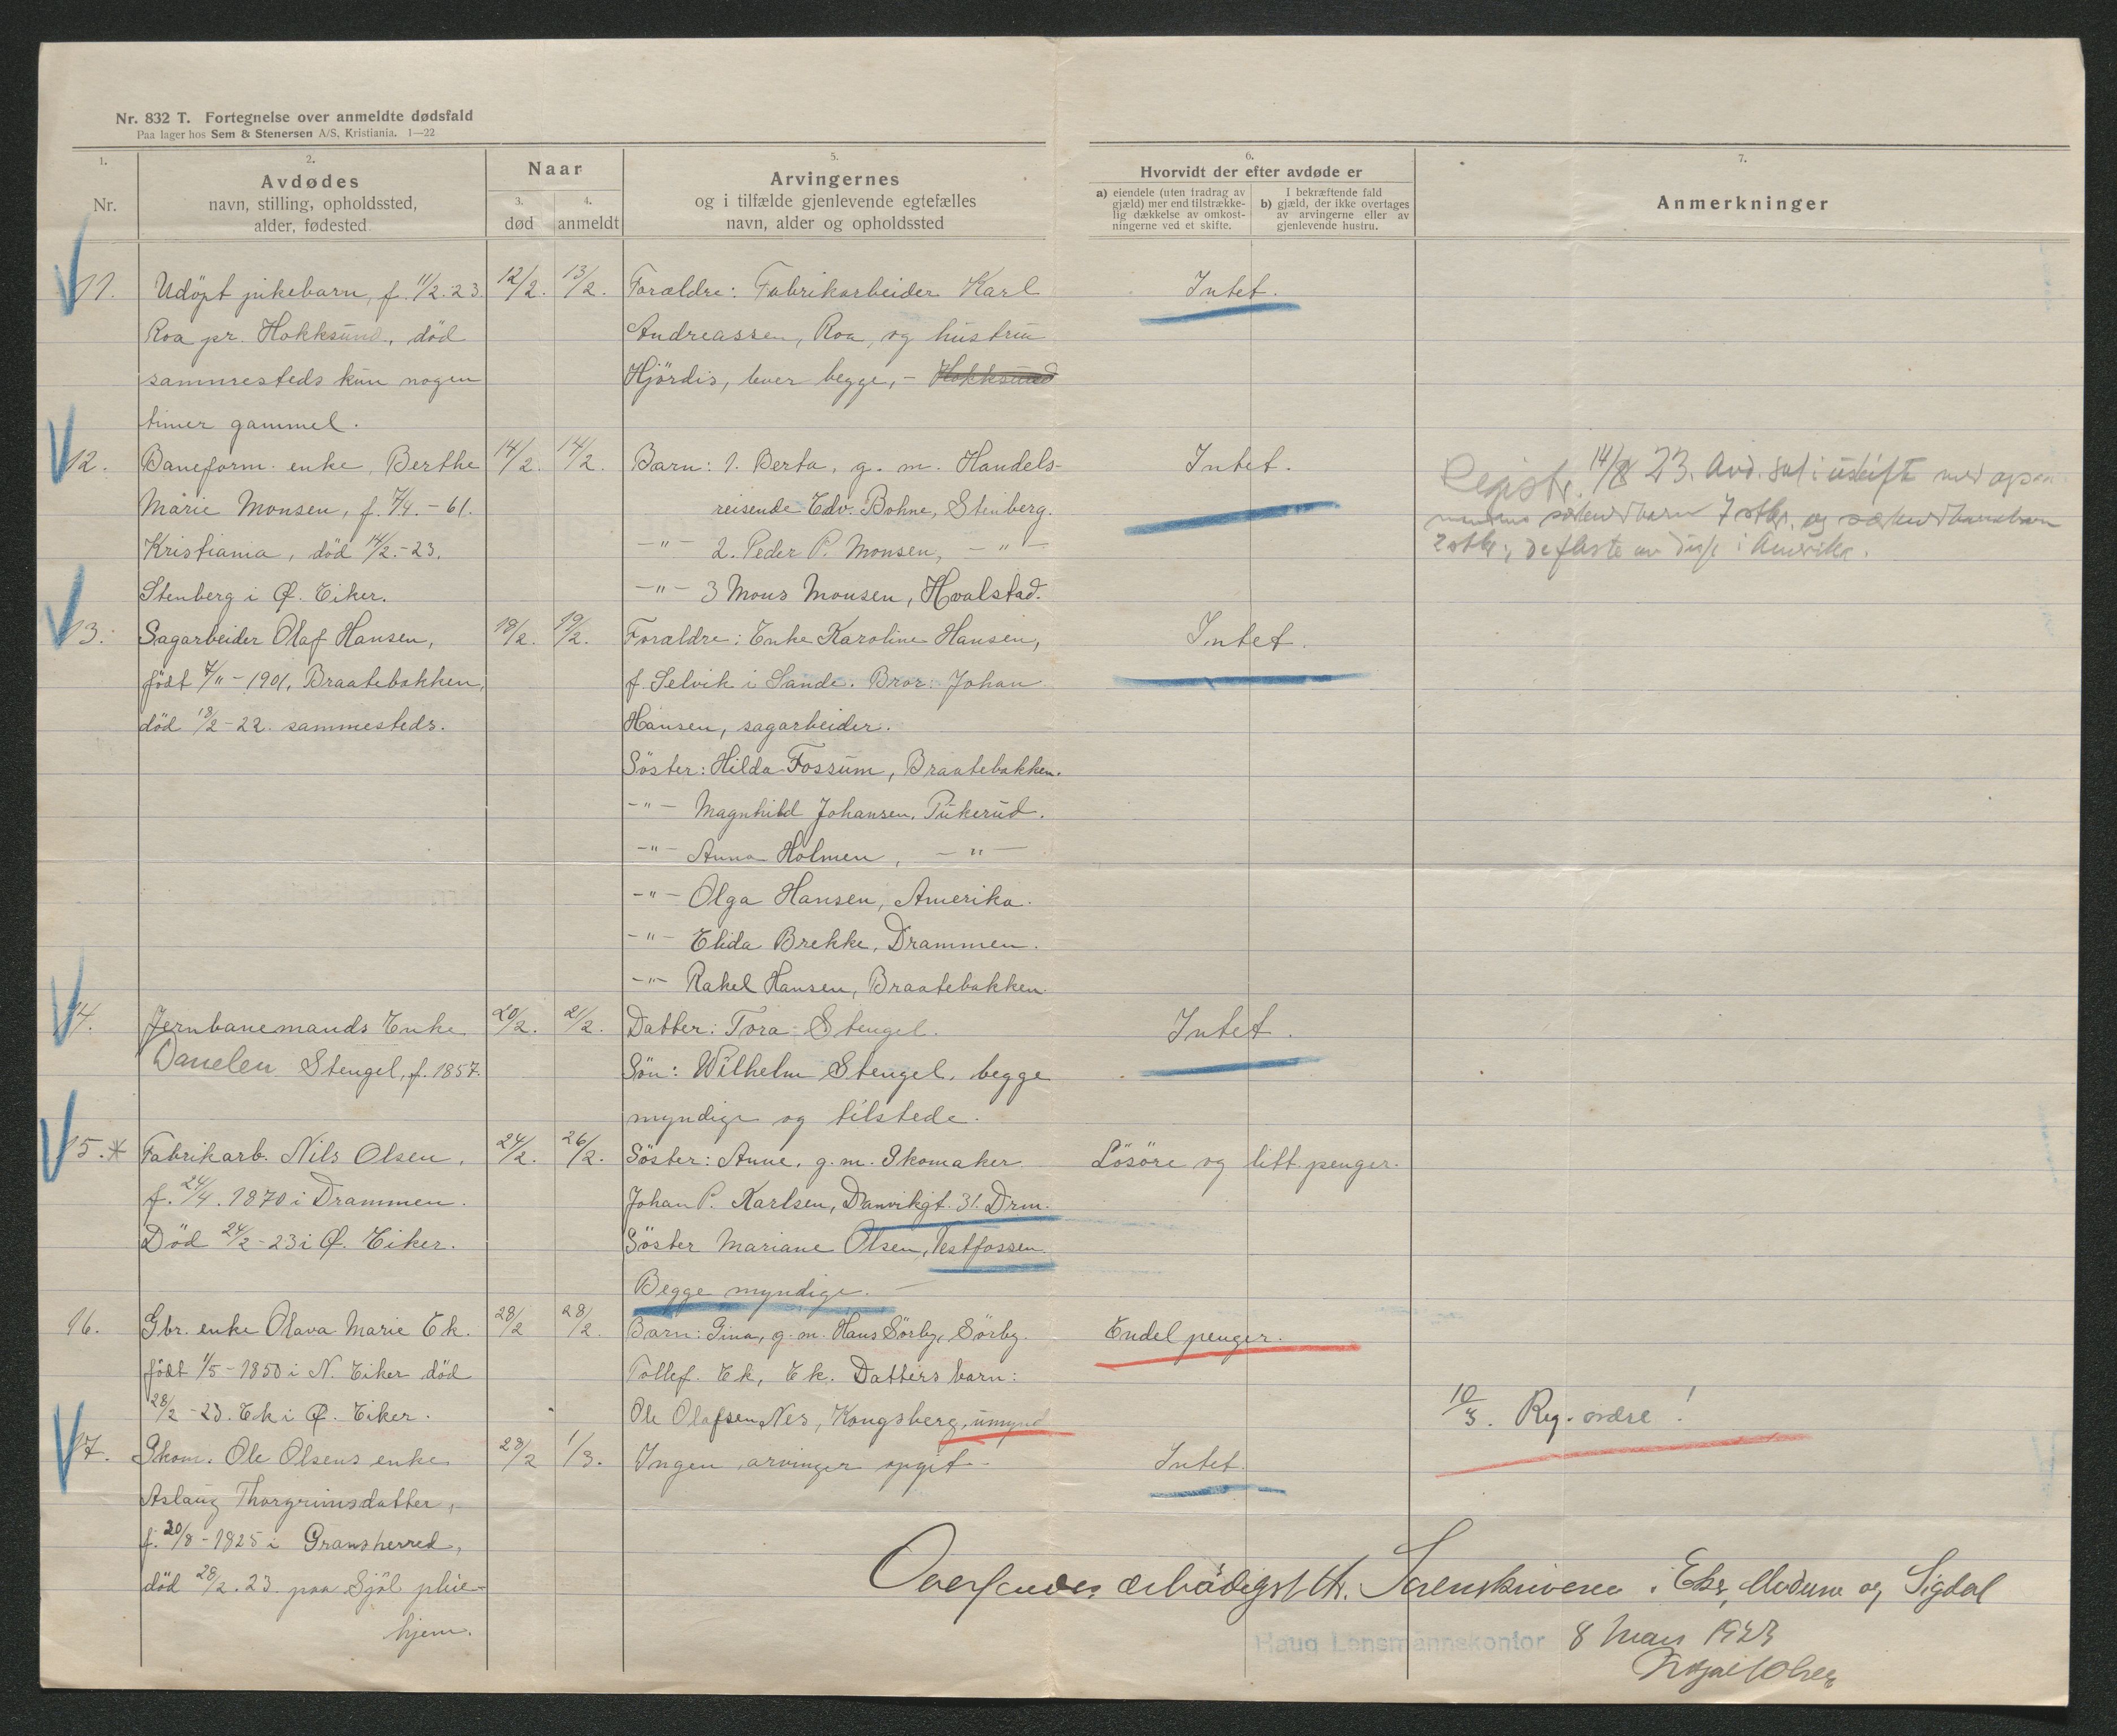 Nr. 832 T. Fortegnelse over anmeldte dødsfald
Paa lager hos Sem & Stenersen A/S, Kristiania. 1—22
1.
Nr.
2.
Avdødes
navn, stilling, opholdssted,
alder, fødested
Naar
3.
død
4.
anmeldt
5.
Arvingernes
og i tilfælde gjenlevende egtefælles
navn, alder og opholdssted
6.
Hvorvidt der efter avdøde er
a) eiendele (uten fradrag av
gjæld) mer end tilstrække-
lig dækkelse av omkost-
ningerne ved et skifte.
I bekræftende fald
b) gjæld, der ikke overtages
av arvingerne eller av
gjenlevende hustru.
7.
Anmerkninger
11. Udöpt pikebarn, f. 11/2.23. 12/2. 13/2. Forældre: Fabrikarbeider Karl Intet.
Roa pr. Hokksund, död Andreassen, Roa, og hustru
sammesteds kun nogen Hjördis, lever begge, - Hokksund
timer gammel.
12. Baneform. enke, Berthe 14/2. 14/2. Barn: 1. Berta, g. m. Handels- Intet.
Marie Monsen, f. 7/4.-61. reisende Edv. Bohne, Stenberg.
Kristiania, död 14/2.-23. -"- 2. Peder P. Monsen, -"-
Stenberg i Ø. Eiker. -"- 3 Mons Monsen, Hvalstad.
Registr. 14/8 23. Avd. sat i uskifte med
7 stkr. og
2 stkr., de fleste av disse i Amerika.
13. Sagarbeider Olaf Hansen, 18/2. 19/2. Forældre: Enke Karoline Hansen, Intet.
født 7/11-1901, Braatebakken, f. Selvik i Sande. Bror: Johan
död 18/2-22. sammesteds. Hansen, sagarbeider.
Söster: Hilda Fossum, Braatebakken.
-"- Magnhild Johansen, Pukerud.
-"- Anna Holmen, -"-
-"- Olga Hansen, Amerika.
-"- Elida Brekke, Drammen.
-"- Rakel Hansen, Braatebakken.
14. Jernbanemands Enke 20/2. 21/2. Datter: Tora Stengel. Intet.
Danelen Stengel, f. 1857. Sön: Wilhelm Stengel, begge
myndige og tilstede.
15.* Fabrikarb. Nils Olsen, 24/2. 26/2. Söster: Anne, g. m. Skomaker Lösöre og litt penger.
f. 24/4. 1870 i Drammen. Johan P. Karlsen, Danvikgt. 31. Drm.
Död 24/2-23 i Ø. Eiker. Söster Mariane Olsen, Vestfossen.
Begge myndige. -
16. Gbr. enke Olava Marie Ek. 28/2 28/2. Barn: Gina, g. m. Hans Sörby, Sörby. Endel penger.
födt 1/5-1850 i N. Eiker död Tollef Ek, Ek. Datters barn:
28/2-23. Ek i Ø. Eiker. Ole Olafsen Nes, Kongsberg, umynd
10/3. Reg. ordre!
17. Skom. Ole Olsens enke 28/2 1/3. Ingen arvinger opgit. Intet.
Aslaug Thorgrimsdatter,
f. 20/8-1825 i Gransherred,
död 28/2.23. paa Sjöl pleie-
hjem.
Oversendes ærbödigst Hr. Sorenskriveren i Eker, Modum og Sigdal
Haug Lensmannskontor 8 Mars 1923